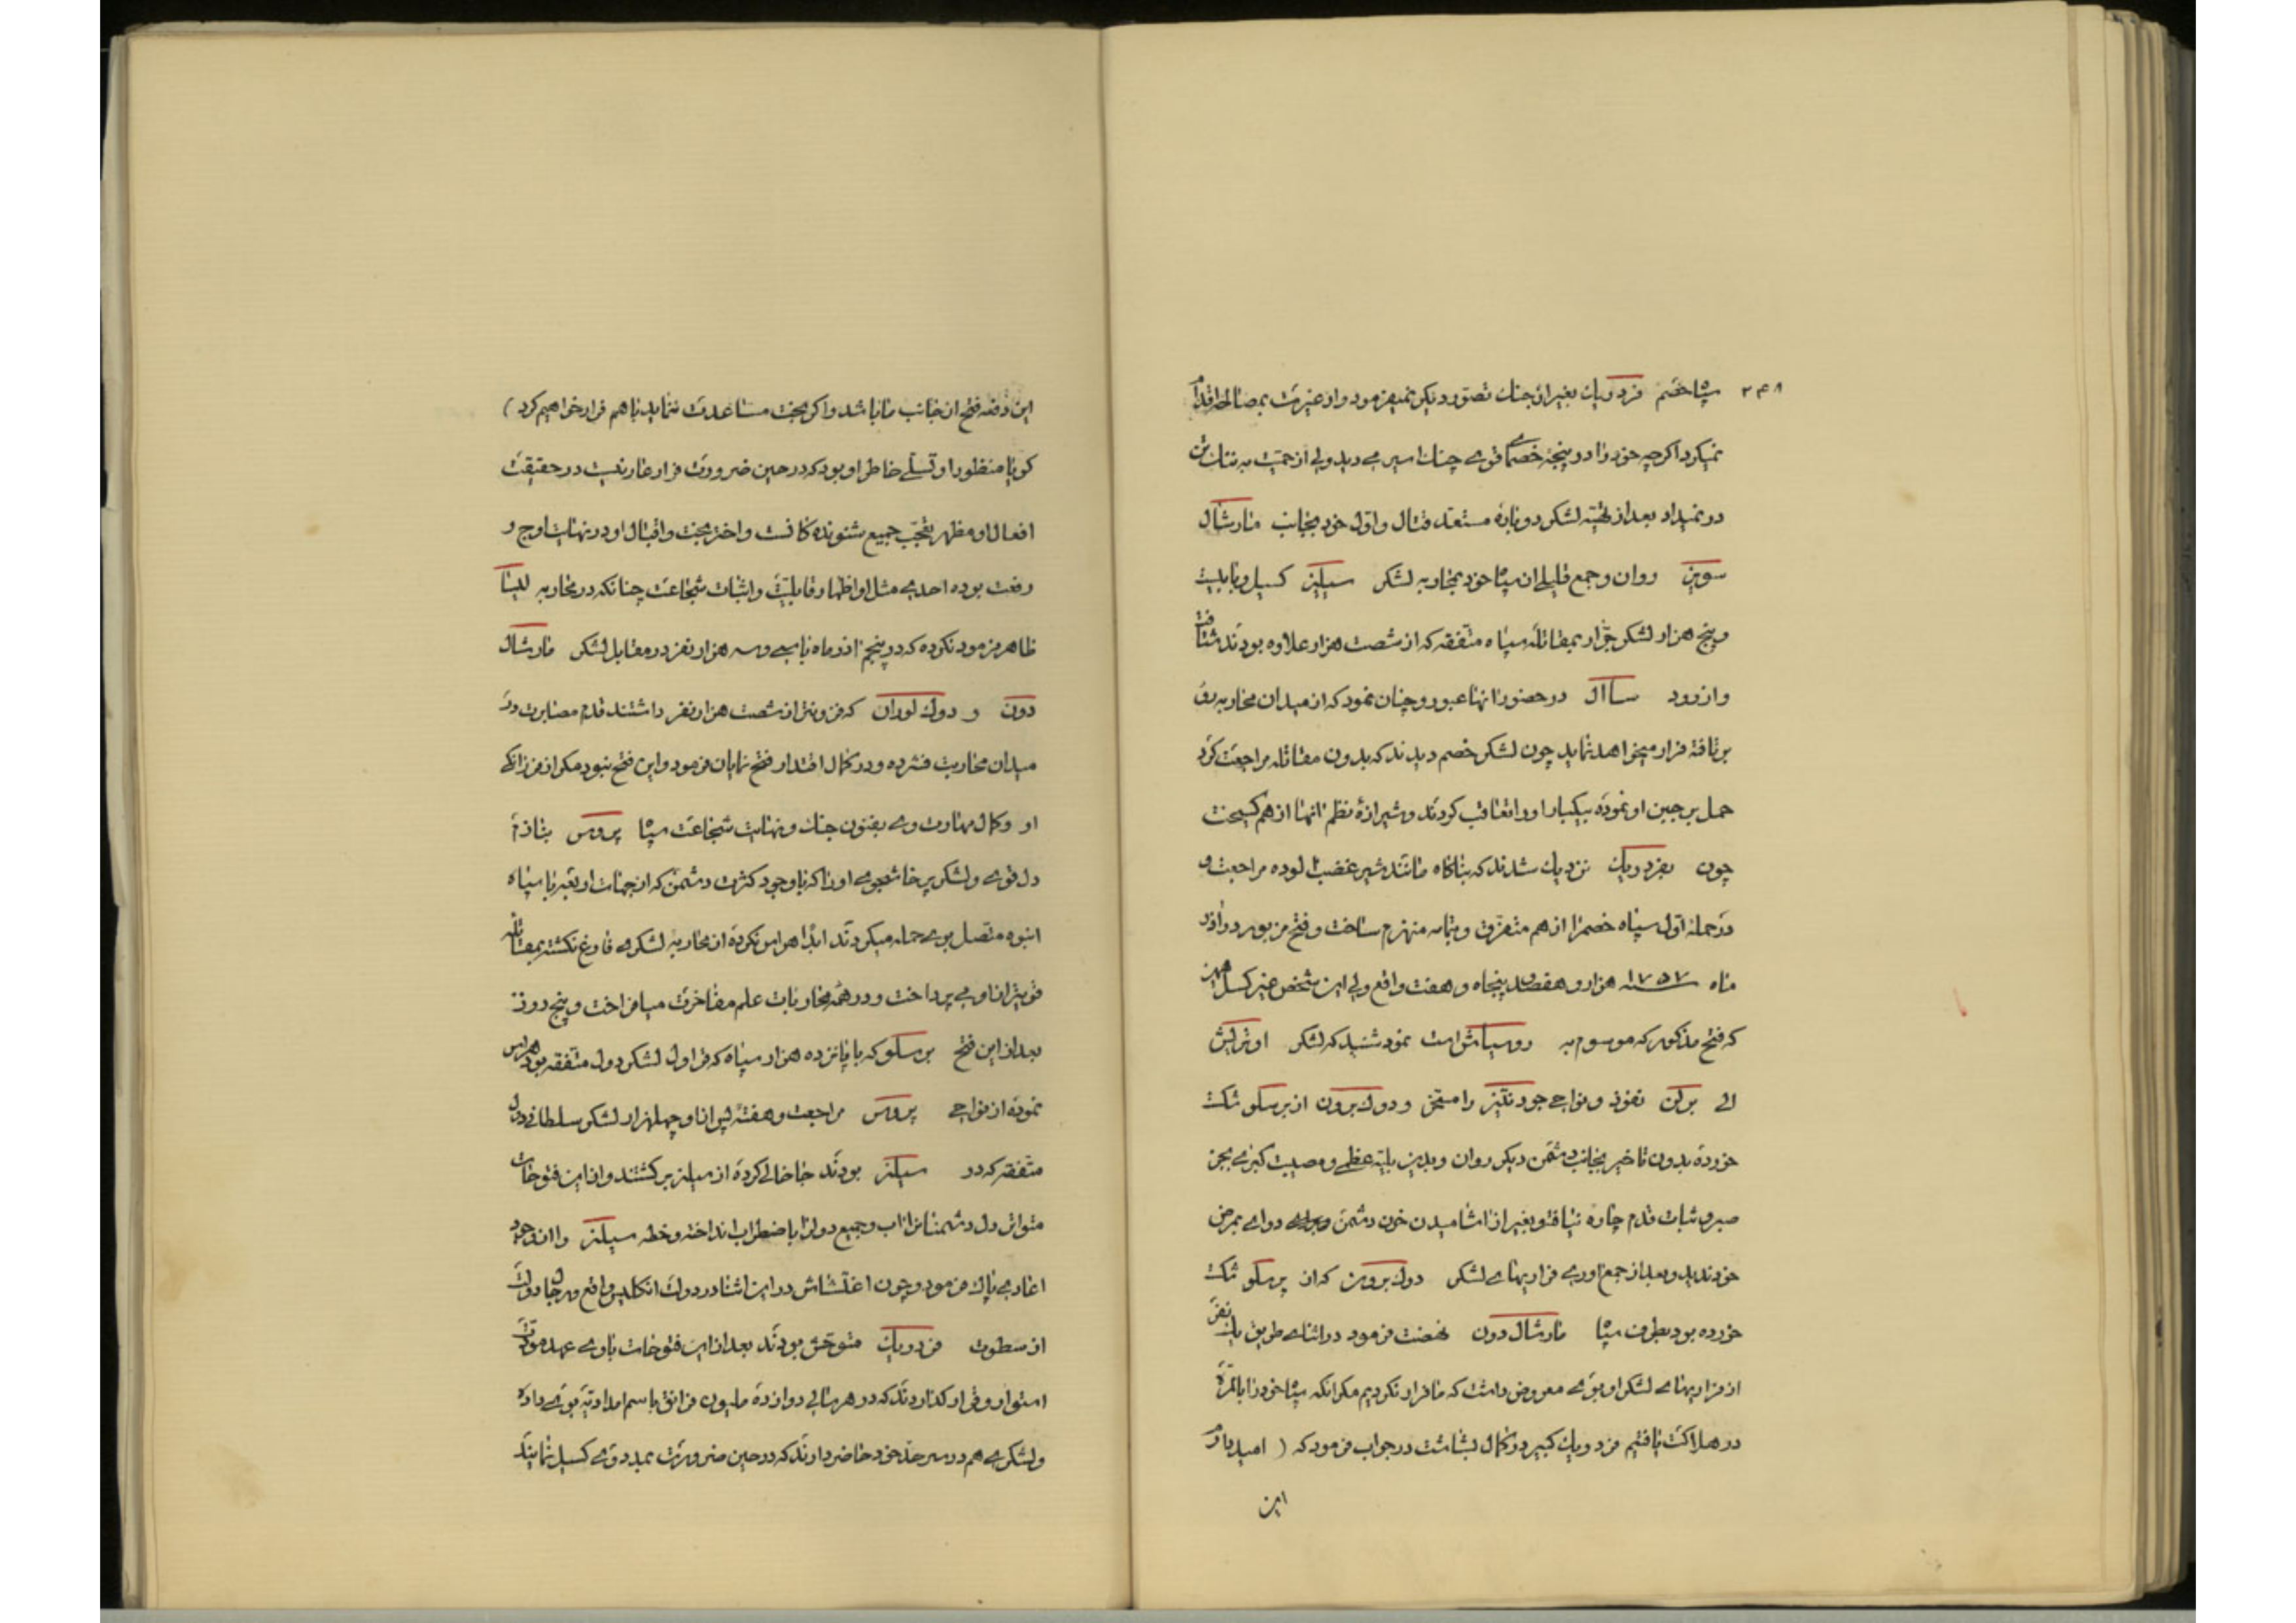 ۲۴۸
سپاه خصم فردریک بغیر از جنک تصور دیکر نمیفرمود و از غیرت بمصالحه اقدام
نمیکرد اکرچه خود را در پنجهٔ خصمای قوی چنک اسیر می دید ولی از حمیت به ننک تن
در نمیداد بعد از تهیهٔ لشکر دوباره مستعد قتال و اول خود بجانب مارشال
سوبیز روان و جمع قلیلی از سپاه خود بمحاربه لشکر سیلیز کسیل و با بیست
و پنج هزار لشکر جرّار بمقاتلهٔ سپاه متفقه که از شصت هزار علاوه بودند شتافت
و از رود ساال در حضور انها عبور و چنان نمود که از میدان محاربه روی
بر تافته فرار میخواهد نماید چون لشکر خصم دیدند که بدون مقاتله مراجعت کرد
حمل بر جبن او نموده بیکبار او را تعاقب کردند و شیرازهٔ نظم انها از هم کسیخت
چون بفردریک نزدیک شدند که بناکاه مانند شیر غضب الوده مراجعت و
در حملهٔ اول سپاه خصم را از هم متفرق و بتمامه منهزم ساخت و فتح مزبور در
ماه سنه ۱۷۵۷ هزار و هفتصد پنجاه و هفت واقع ولی این شخص خبیر کسل همین
که فتح مذکور که موسوم به روسباش است نمود شنید که لشکر اوتریش
الی برلن نفوذ و نواحی را مسخر و دوک برون از برسلو شکست
خورده بدون تاخیر بجانب دشمن دیکر روان و بدین بلیهٔ عظمی و مصیبت کبری بجز
صبر و ثبات قدم چاره نیافته و بغیر از اشامیدن خون دشمن دوای بمرض
خود ندید و بعد از جمع اوری فراریهای لشکر دوک برون که از برسلو شکست
خورده بود بطرف سپاه مارشال دون نهضت فرمود در اثنای طریق یک نفر
از فراریهای لشکر او بوی معروض داشت که ما فرار نکردیم مکر انکه سپاه خود را بالمره
در هلاکت یافتیم فردریک کبیر در کمال بشاشت در جواب فرمود که ( امید دارم
این
این دفعه فتح از جانب ما باشد و اکر بخت مساعدت ننماید با هم فرار خواهیم کرد )
کویا منظور او تسلی خاطر او بود که در حین ضرورت فرار عار نیست در حقیقت
افعال او مظهر تعجب جمیع شنونده کانست و اختر بخت و اقبال او در نهایت اوج و
رفعت بوده احدی مثل او اظهار قابلیت و اثبات شجاعت چنانکه در محاربه لیسا
ظاهر فرمود نکرده که در پنجم اذر ماه با سی و سه هزار نفر در مقابل لشکر مارشال
دون و دوک لوران که فزونتر از شصت هزار نفر داشتند قدم مصابرت در
میدان محاربت فشرده و در کمال اقتدار فتح نمایان فرمود و این فتح نبود مکر از فرزانکی
او و کمال مهارت وی بفنون جنک و نهایت شجاعت سپاه پروس
دل قوی و لشکر پرخاشجوی او را که با وجود کثرت دشمن که از جهات اربعه با سپاه
انبوه متصل بوی حمله میکردند ابدا هراس نکرده از محاربه لشکری فارغ نکشته بمقاتله
قویتر از او می پرداخت و در همه محاربات علم مفاخرت می افراخت و پنج روز
بعد از این فتح برسلو که با پانزده هزار سپاه که قراول لشکر دول متفقه بود
نموده از نواحی پروس مراجعت و هفتهٔ پس از او چهل هزار لشکر سلطانی دول
متفقه که در سیلز بودند جا خالی کرده از سیلز بر کشتند و از این فتوحات
متواتر دل دشمنانرا اب و جمیع دول را باضطراب انداخته و خطه سیلز را از وجود
اعادی پاک فرمود و چون اغتشاش در این اثنا در دولت انکلیس واقع و رجال دولت
از سطوت فردریک متوحش بودند بعد از این فتوحات باوی عهد مودت
استوار و قرار کذاردند که در هر سالی دوازده ملیون فرانق باسم امدادیه بوی داده
و لشکری هم در سر حد خود حاضر دارند که در حین ضرورت بمدد وی کسیل نمایند